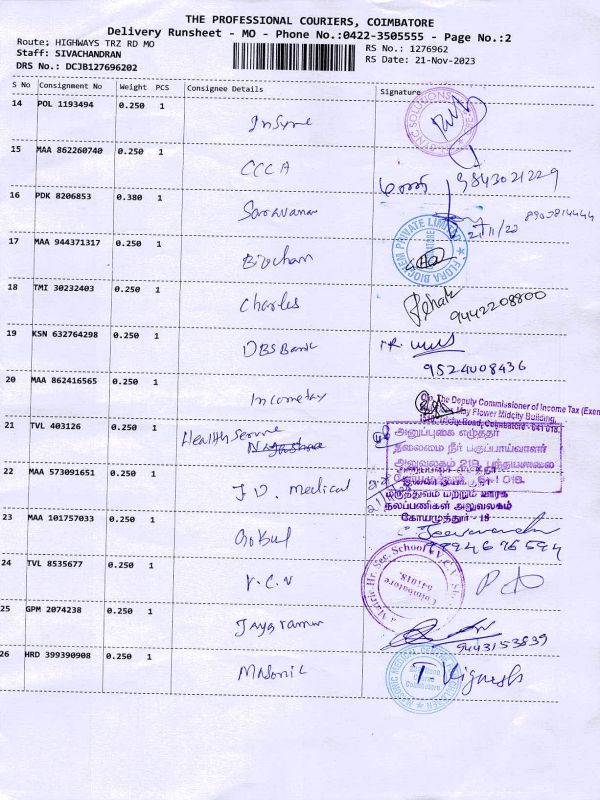 THE PROFESSIONAL COURIERS, COIMBATORE
Delivery Runsheet - MO - Phone No.:0422-3505555 - Page No.:2
Route: HIGHWAYS TRZ RD MO
Staff: SIVACHANDRAN
DRS No.: DCJB127696202
RS No.: 1276962
RS Date: 21-Nov-2023
S No Consignment No Weight PCS Consignee Details Signature
14 POL 1193494 0.250 1
Insync
15 MAA 862260740 0.250 1
CCCA
மணி 9843021229
16 PDK 8206853 0.380 1
Saravanan
8903814444
FLORA BIOCHEM PRIVATE LIMITED
17 MAA 944371317 0.250 1
Biochem
18 TMI 30232403 0.250 1
Charles
9442208800
19 KSN 632764298 0.250 1
DBS Bank
9524008436
20 MAA 862416565 0.250 1
Incometax
The Deputy Commissioner of Income Tax (Exem
May Flower Midcity Building,
Road, Coimbatore - 641 018.
21 TVL 403126 0.250 1
Health Service
அனுப்புகை எழுத்தர்
தலைமை நீர் பகுப்பாய்வாளர்
அலுவலகம்
22 MAA 573091651 0.250 1
J.D. Medical
மருத்துவம் மற்றும் ஊரக
நலப்பணிகள் அலுவலகம்
கோயமுத்தூர் - 18
23 MAA 101757033 0.250 1
Gokul
24 TVL 8535677 0.250 1
V.C.V
Matric Hr. Sec. School
Coimbatore
641018.
25 GPM 2074238 0.250 1
Jayaraman
9443153839
26 HRD 399390908 0.250 1
M Nsonic
T. Vignesh